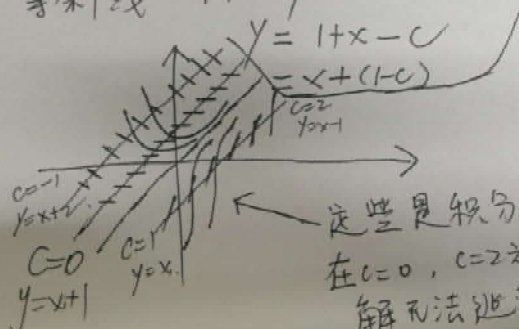 y = 1+x-c
= x+(1-c)
c=2
y=x-1
c=-1
y=x+2
C=0
y=x+1
c=1
y=x
这些是积分
在c=0，c=2
解无法逃